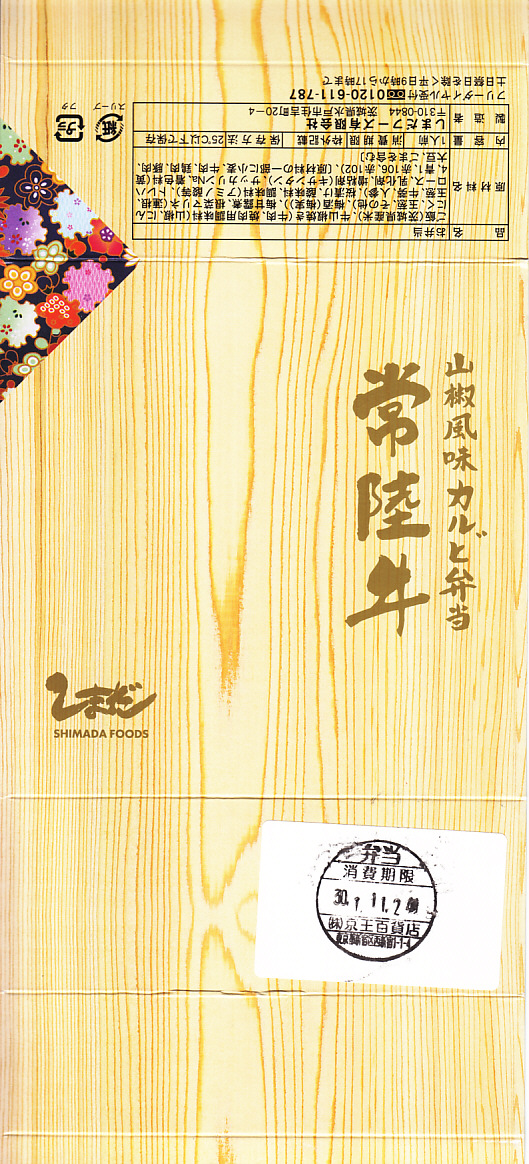 品名 お弁当
原材料名 ご飯(茨城県産米)、牛山椒焼き(牛肉、焼肉用調味料、山椒、にん
にく、玉葱、その他)、梅酒(梅実)、梅甘露煮、根菜マリネ(蓮根、
玉葱、牛蒡、人参)、桜漬け、酸味料、調味料(アミノ酸等)、トレハ
ロース、乳化剤、増粘剤(キサンタン)、サッカリンNa、着色料(黄
4、青1、赤106、赤102)、(原材料の一部に小麦、牛肉、鶏肉、豚肉、
大豆、ごまを含む)
内容量 1人前 消費期限 枠外記載 保存方法 25℃以下で保存
製造者 しまだフーズ有限会社
〒310-0844 茨城県水戸市住吉町20-4
フリーダイヤル受付 0120-611-787
土日祭日を除く平日9時から17時まで
スリーブ
紙
フタ
プラ
山椒風味カルビ弁当
常陸牛
しまだ
SHIMADA FOODS
弁当
消費期限
30.1.11.2
㈱京王百貨店